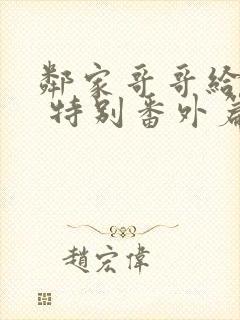 鄰家哥哥給
特別番外篇
趙宏偉